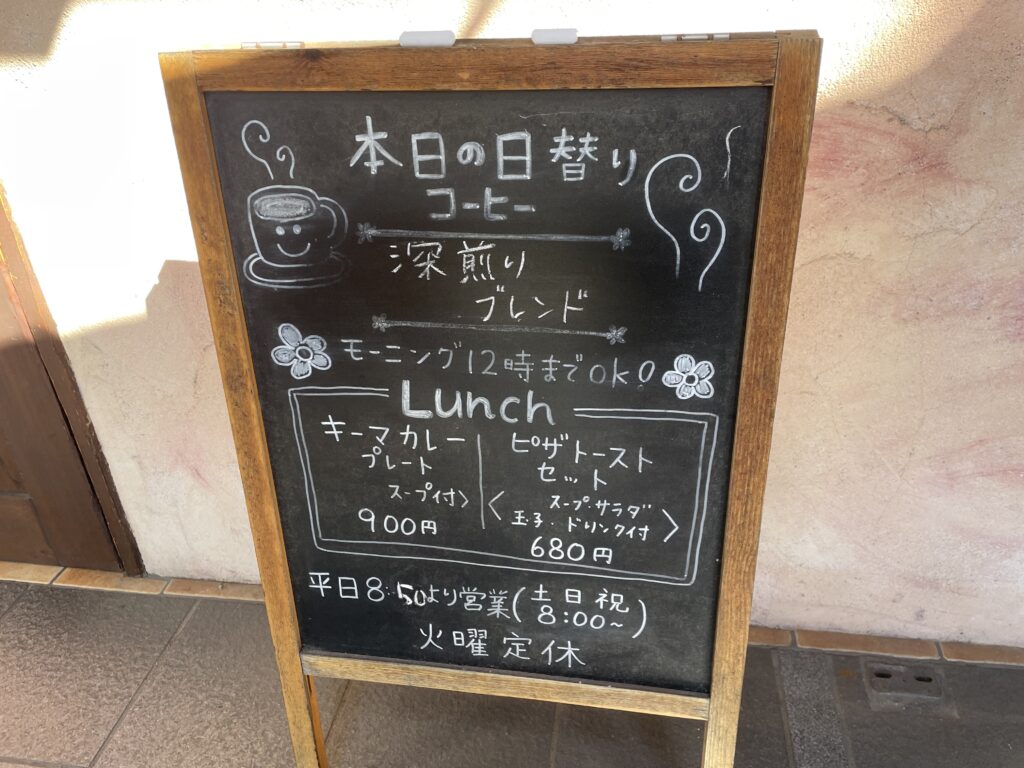 本日の日替り
コーヒー
深煎り
ブレンド
モーニング12時までOK!
Lunch
キーマカレー
プレート
スープ付>
900円
ピザトースト
セット
<スープ・サラダ
玉子・ドリンク付>
680円
平日8:50より営業(土日祝
8:00~)
火曜定休